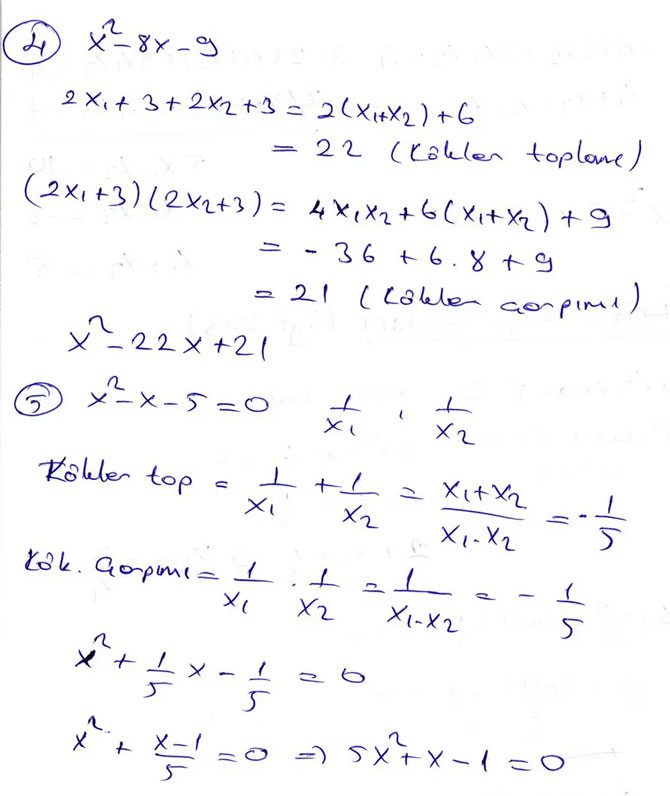 ④ x² - 8x - 9
2x₁ + 3 + 2x₂ + 3 = 2(x₁+x₂) + 6
= 22 (Kökler toplamı)
(2x₁+3)(2x₂+3) = 4x₁x₂ + 6(x₁+x₂) + 9
= - 36 + 6.8 + 9
= 21 (Kökler çarpımı)
x² - 22x + 21
⑤ x² - x - 5 = 0 1/x₁ , 1/x₂
Kökler top = 1/x₁ + 1/x₂ = (x₁+x₂)/(x₁.x₂) = - 1/5
Kök. Çarpımı = 1/x₁ . 1/x₂ = 1/(x₁.x₂) = - 1/5
x² + 1/5 x - 1/5 = 0
x² + (x-1)/5 = 0 ⇒ 5x² + x - 1 = 0